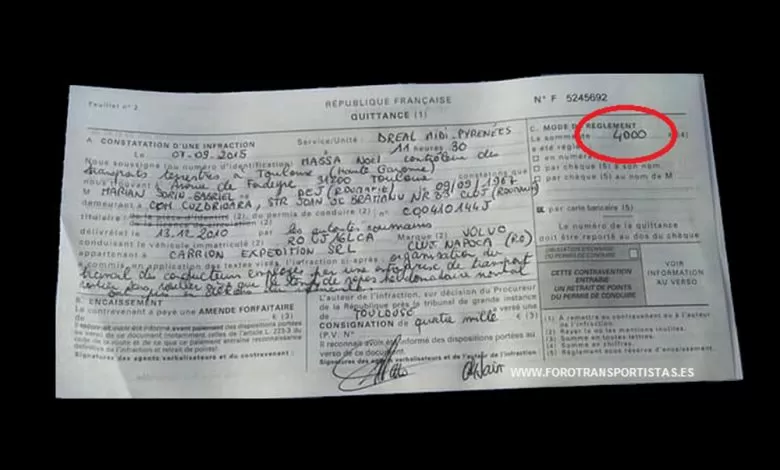 Feuillet n° 2
RÉPUBLIQUE FRANÇAISE
QUITTANCE (1)
N° F 5245692
A. CONSTATATION D'UNE INFRACTION
Service/Unité : DREAL MIDI-PYRENÉES
Le 07-09-2015 à 11 heures 30
Nous soussigné (ou numéro d'identification) MASSA NOËL contrôleur des
transports terrestres à Toulouse (Haute Garonne)
nous trouvant Avenue de 31200 Toulouse constatons que
M MARIAN SORIN-GABRIEL DEJ (ROUMANIE) 09/09/1967
demeurant à COM CUZDRIOARA, STR IOAN JC BRATIANU NR 83 CLUJ (ROUMANIE)
titulaire : de la pièce d'identité (2), du permis de conduire (2) : n° C00410144J
délivré le 13.12.2010 par les autorités roumaines
conduisant le véhicule immatriculé (2) Marque (2) VOLVO
appartenant à CARRION EXPEDITION SRL CLUJ NAPOCA (RO)
a commis en application des textes visés l'infraction ci-après : organisation du
travail de conducteur employés par une entreprise de transport
routier sans veiller à ce que le temps de repos hebdomadaire normal
B. ENCAISSEMENT
Le contrevenant a payé une AMENDE FORFAITAIRE
€ (3)
Signatures des agents verbalisateurs et du contrevenant :
L'auteur de l'infraction, sur décision du Procureur
de la République près le tribunal de grande instance
de TOULOUSE
CONSIGNATION quatre mille € (3)
(P.V. N°
Il reconnaît avoir été informé des dispositions portées au
verso de ce document.
Signatures des agents verbalisateurs et de l'auteur de l'infraction
C. MODE DE RÈGLEMENT
La somme de 4000 € (4)
a été réglée
en numéraire
par chèque (5) à son nom
par chèque (5) au nom de M
par carte bancaire (5)
Le numéro de la quittance
doit être reporté au dos du chèque
CETTE CONTRAVENTION
ENTRAINE
UN RETRAIT DE POINTS
DU PERMIS DE CONDUIRE
VOIR
INFORMATION
AU VERSO
(1) A remettre au contrevenant ou à l'auteur
de l'infraction.
(2) Rayer la ou les mentions inutiles.
(3) Somme en toutes lettres.
(4) Somme en chiffres.
(5) Règlement sous réserve d'encaissement.
WWW.FOROTRANSPORTISTAS.ES